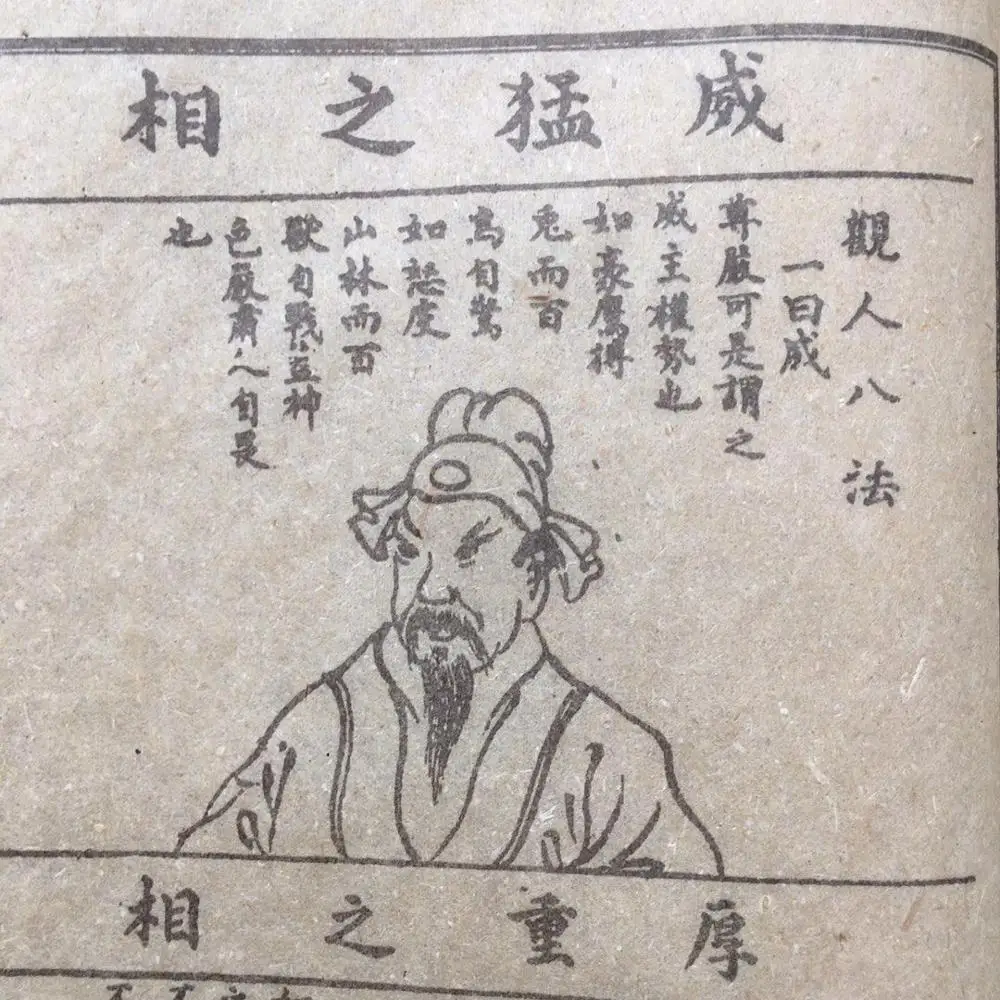 威猛之相
觀人八法
一曰威
尊嚴可是謂之
威主權勢也
如豪鷹搏
兎而百
鳥自驚
如怒虎
山林而百
獸自戰盖神
色嚴肅人自畏
也
厚重之相